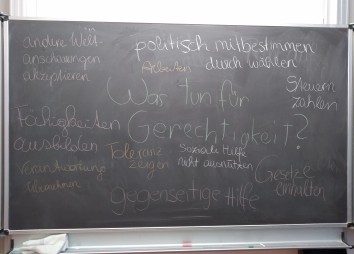 andere Welt-
anschauungen
akzeptieren
politisch mitbestimmen
durch wählen
Arbeiten
Steuern
zahlen
Was tun für
Gerechtigkeit?
Fähigkeiten
ausbilden
Toleranz
zeigen
Soziale Hilfe
nicht ausnutzen
Verantwortung
übernehmen
Gesetze
einhalten
gegenseitige Hilfe